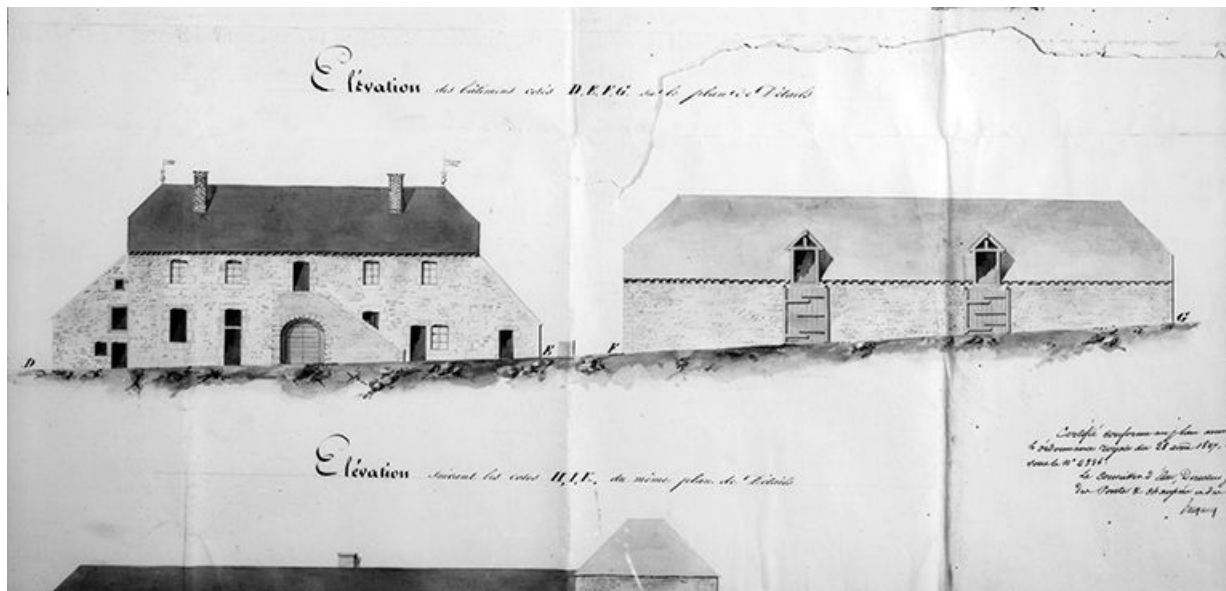 Elévation des bâtiments cotés D.E.F.G. sur le plan de Détails
D
E
F
G
Certifié conforme au plan
à l'ordonnance royale du 28 1827.
sous le N°
Le Conseiller d'Etat, Directeur
des Ponts &
Elévation suivant les cotes H,I,K, du même plan de Détails